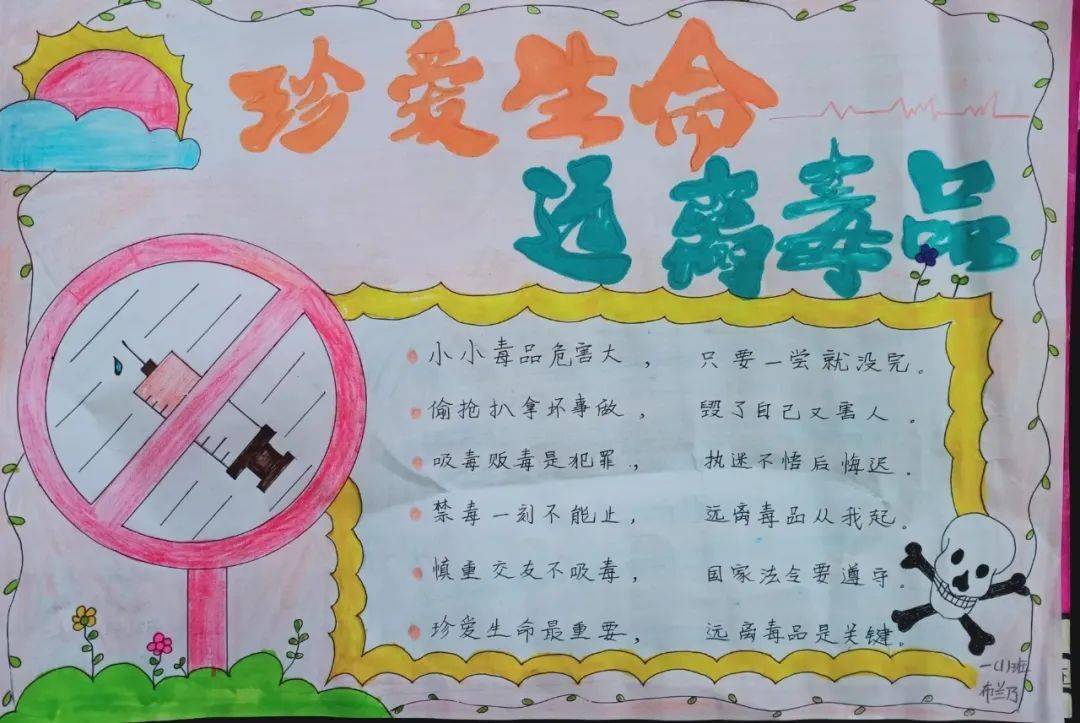 珍爱生命
远离毒品
小小毒品危害大， 只要一尝就没完。
偷抢扒拿坏事做， 毁了自己又害人。
吸毒贩毒是犯罪， 执迷不悟后悔迟。
禁毒一刻不能止， 远离毒品从我起。
慎重交友不吸毒， 国家法令要遵守。
珍爱生命最重要， 远离毒品是关键。
一(1)班
布兰乃